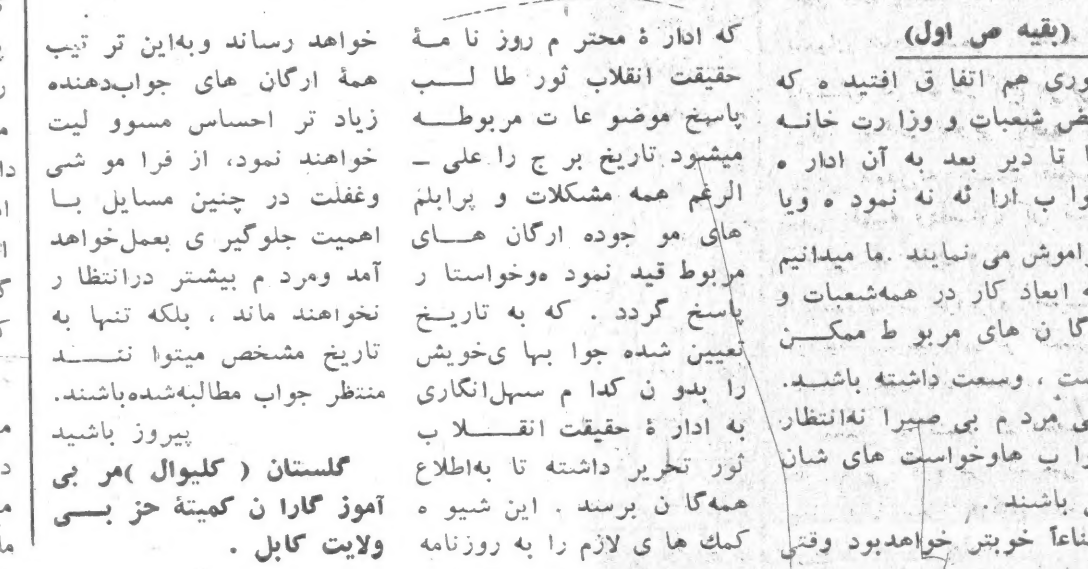 (بقیه ص اول)
وری هم اتفا ق افتید ه که
ض شعبات و وزا رت خانــه
ا تا دیر بعد به آن ادار ه
وا ب ارا ئه نه نمود ه ویا
راموش می نمایند .ما میدانیم
ه ابعاد کار در همه‌شعبات و
گا ن های مربو ط ممکــن
ست ، وسعت داشته باشــد.
ی مرد م بی صبرا نه‌انتظار
وا ب هاوخواست های شان
ی باشند .
ناعاً خوبتر خواهدبود وقتی
که ادار ۀ محتر م روز نا مــۀ
حقیقت انقلاب ثور طا لــب
پاسخ موضو عا ت مربوطــه
میشود تاریخ بر ج را علی ــ
الرغم همه مشکلات و پرابلم
های مو جوده ارگان هــای
مربوط قید نمود ه‌وخواستا ر
پاسخ گردد . که به تاریــخ
تعیین شده جوا بها ی‌خویش
را بدو ن کدا م سهل‌انگاری
به ادار ۀ حقیقت انقــلا ب
ثور تحریر داشته تا به‌اطلاع
همه‌گا ن برسد . این شیو ه
کمك ها ی لازم را به روزنامه
خواهد رساند وبه‌این تر تیب
همۀ ارگان های جواب‌دهنده
زیاد تر احساس مسوو لیت
خواهند نمود، از فرا مو شی
وغفلت در چنین مسایل بــا
اهمیت جلوگیر ی بعمل‌خواهد
آمد ومرد م بیشتر درانتظا ر
نخواهند ماند ، بلکه تنها به
تاریخ مشخص میتوا ننــد
منتظر جواب مطالبه‌شده‌باشند.
پیروز باشید
گلستان ( کلیوال )مر بی
آموز گارا ن کمیتۀ حز بــی
ولایت کابل .